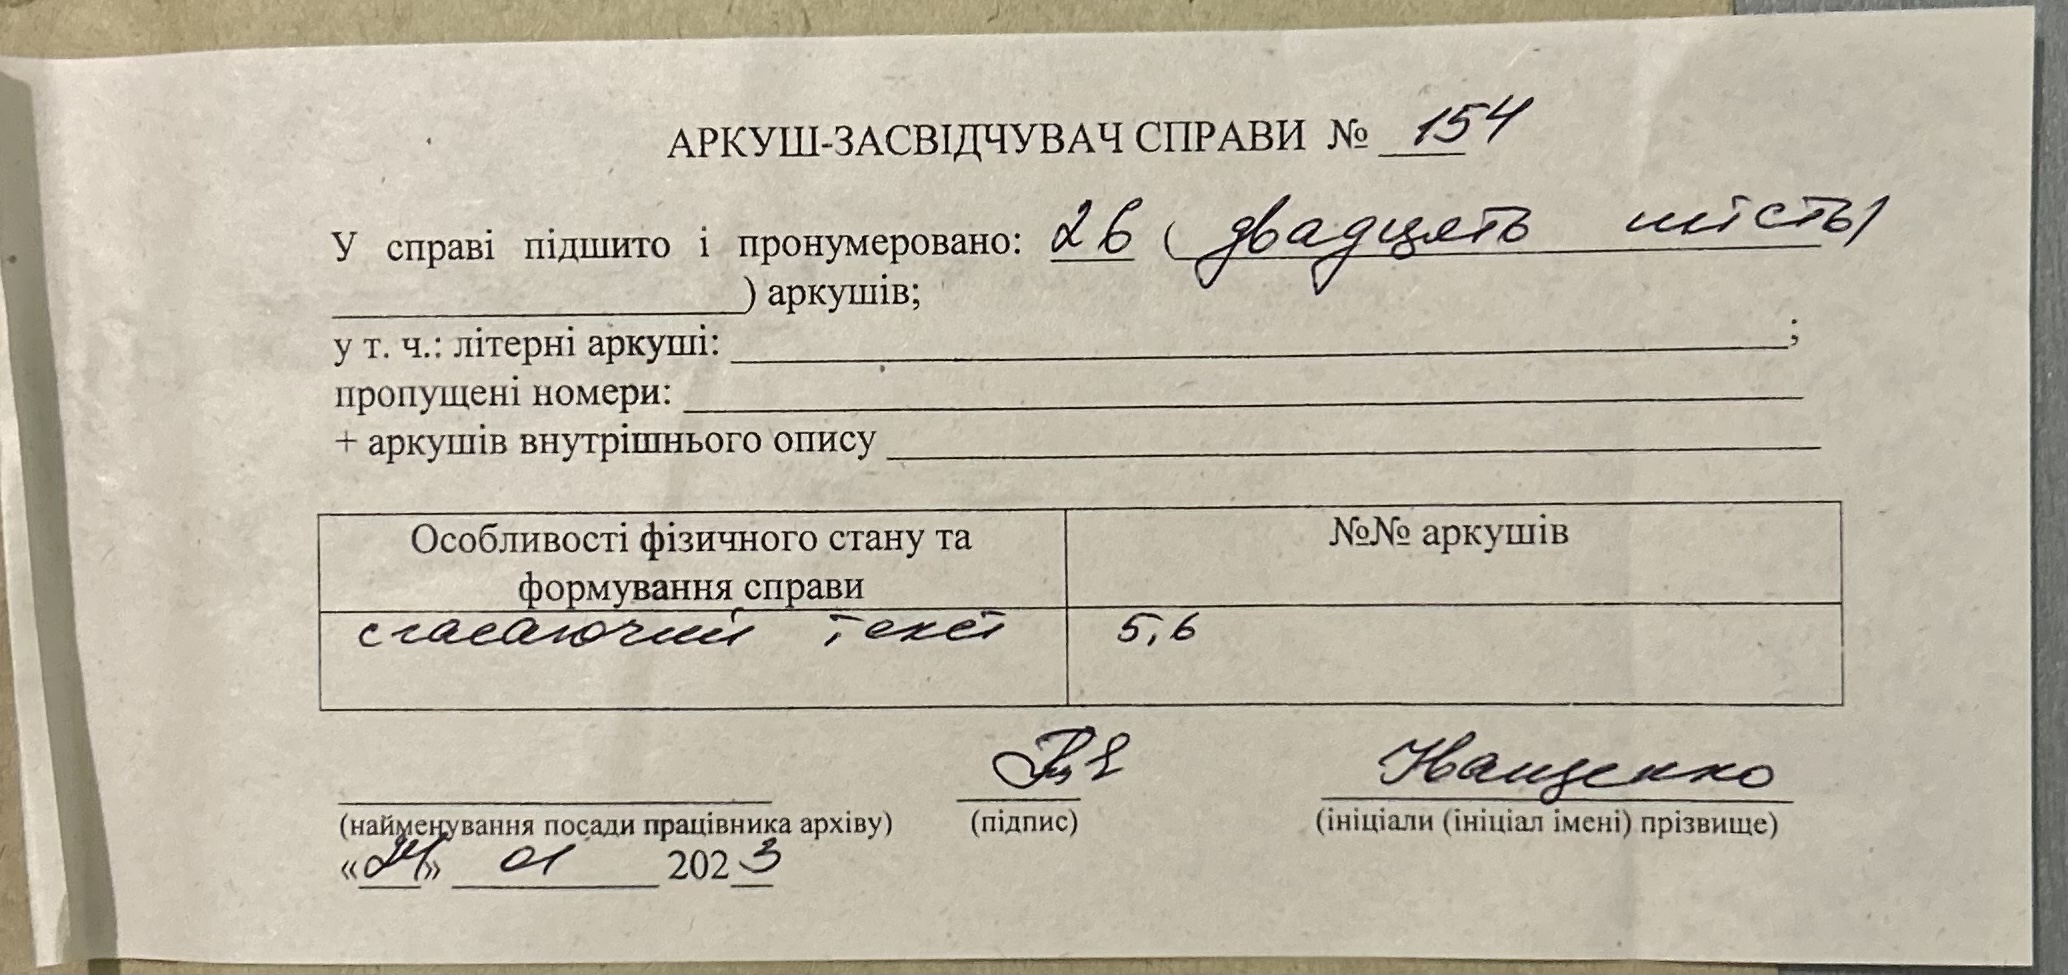 АРКУШ-ЗАСВІДЧУВАЧ СПРАВИ № 154
У справі підшито і пронумеровано: 26 (двадцять шість)
) аркушів;
у т. ч.: літерні аркуші: ;
пропущені номери:
+ аркушів внутрішнього опису
Особливості фізичного стану та
формування справи
№№ аркушів
згасаючий текст
5,6
Іващенко
(найменування посади працівника архіву) (підпис) (ініціали (ініціал імені) прізвище)
«24» 01 2023